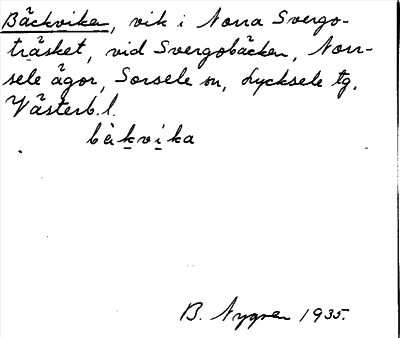 Bäckviken, vik i Norra Svergo-
träsket, vid Svergobäcken, Norr-
sele ägor, Sorsele sn, Lycksele tg,
Västerb. l.
bèkvika
B. Nygren 1935.